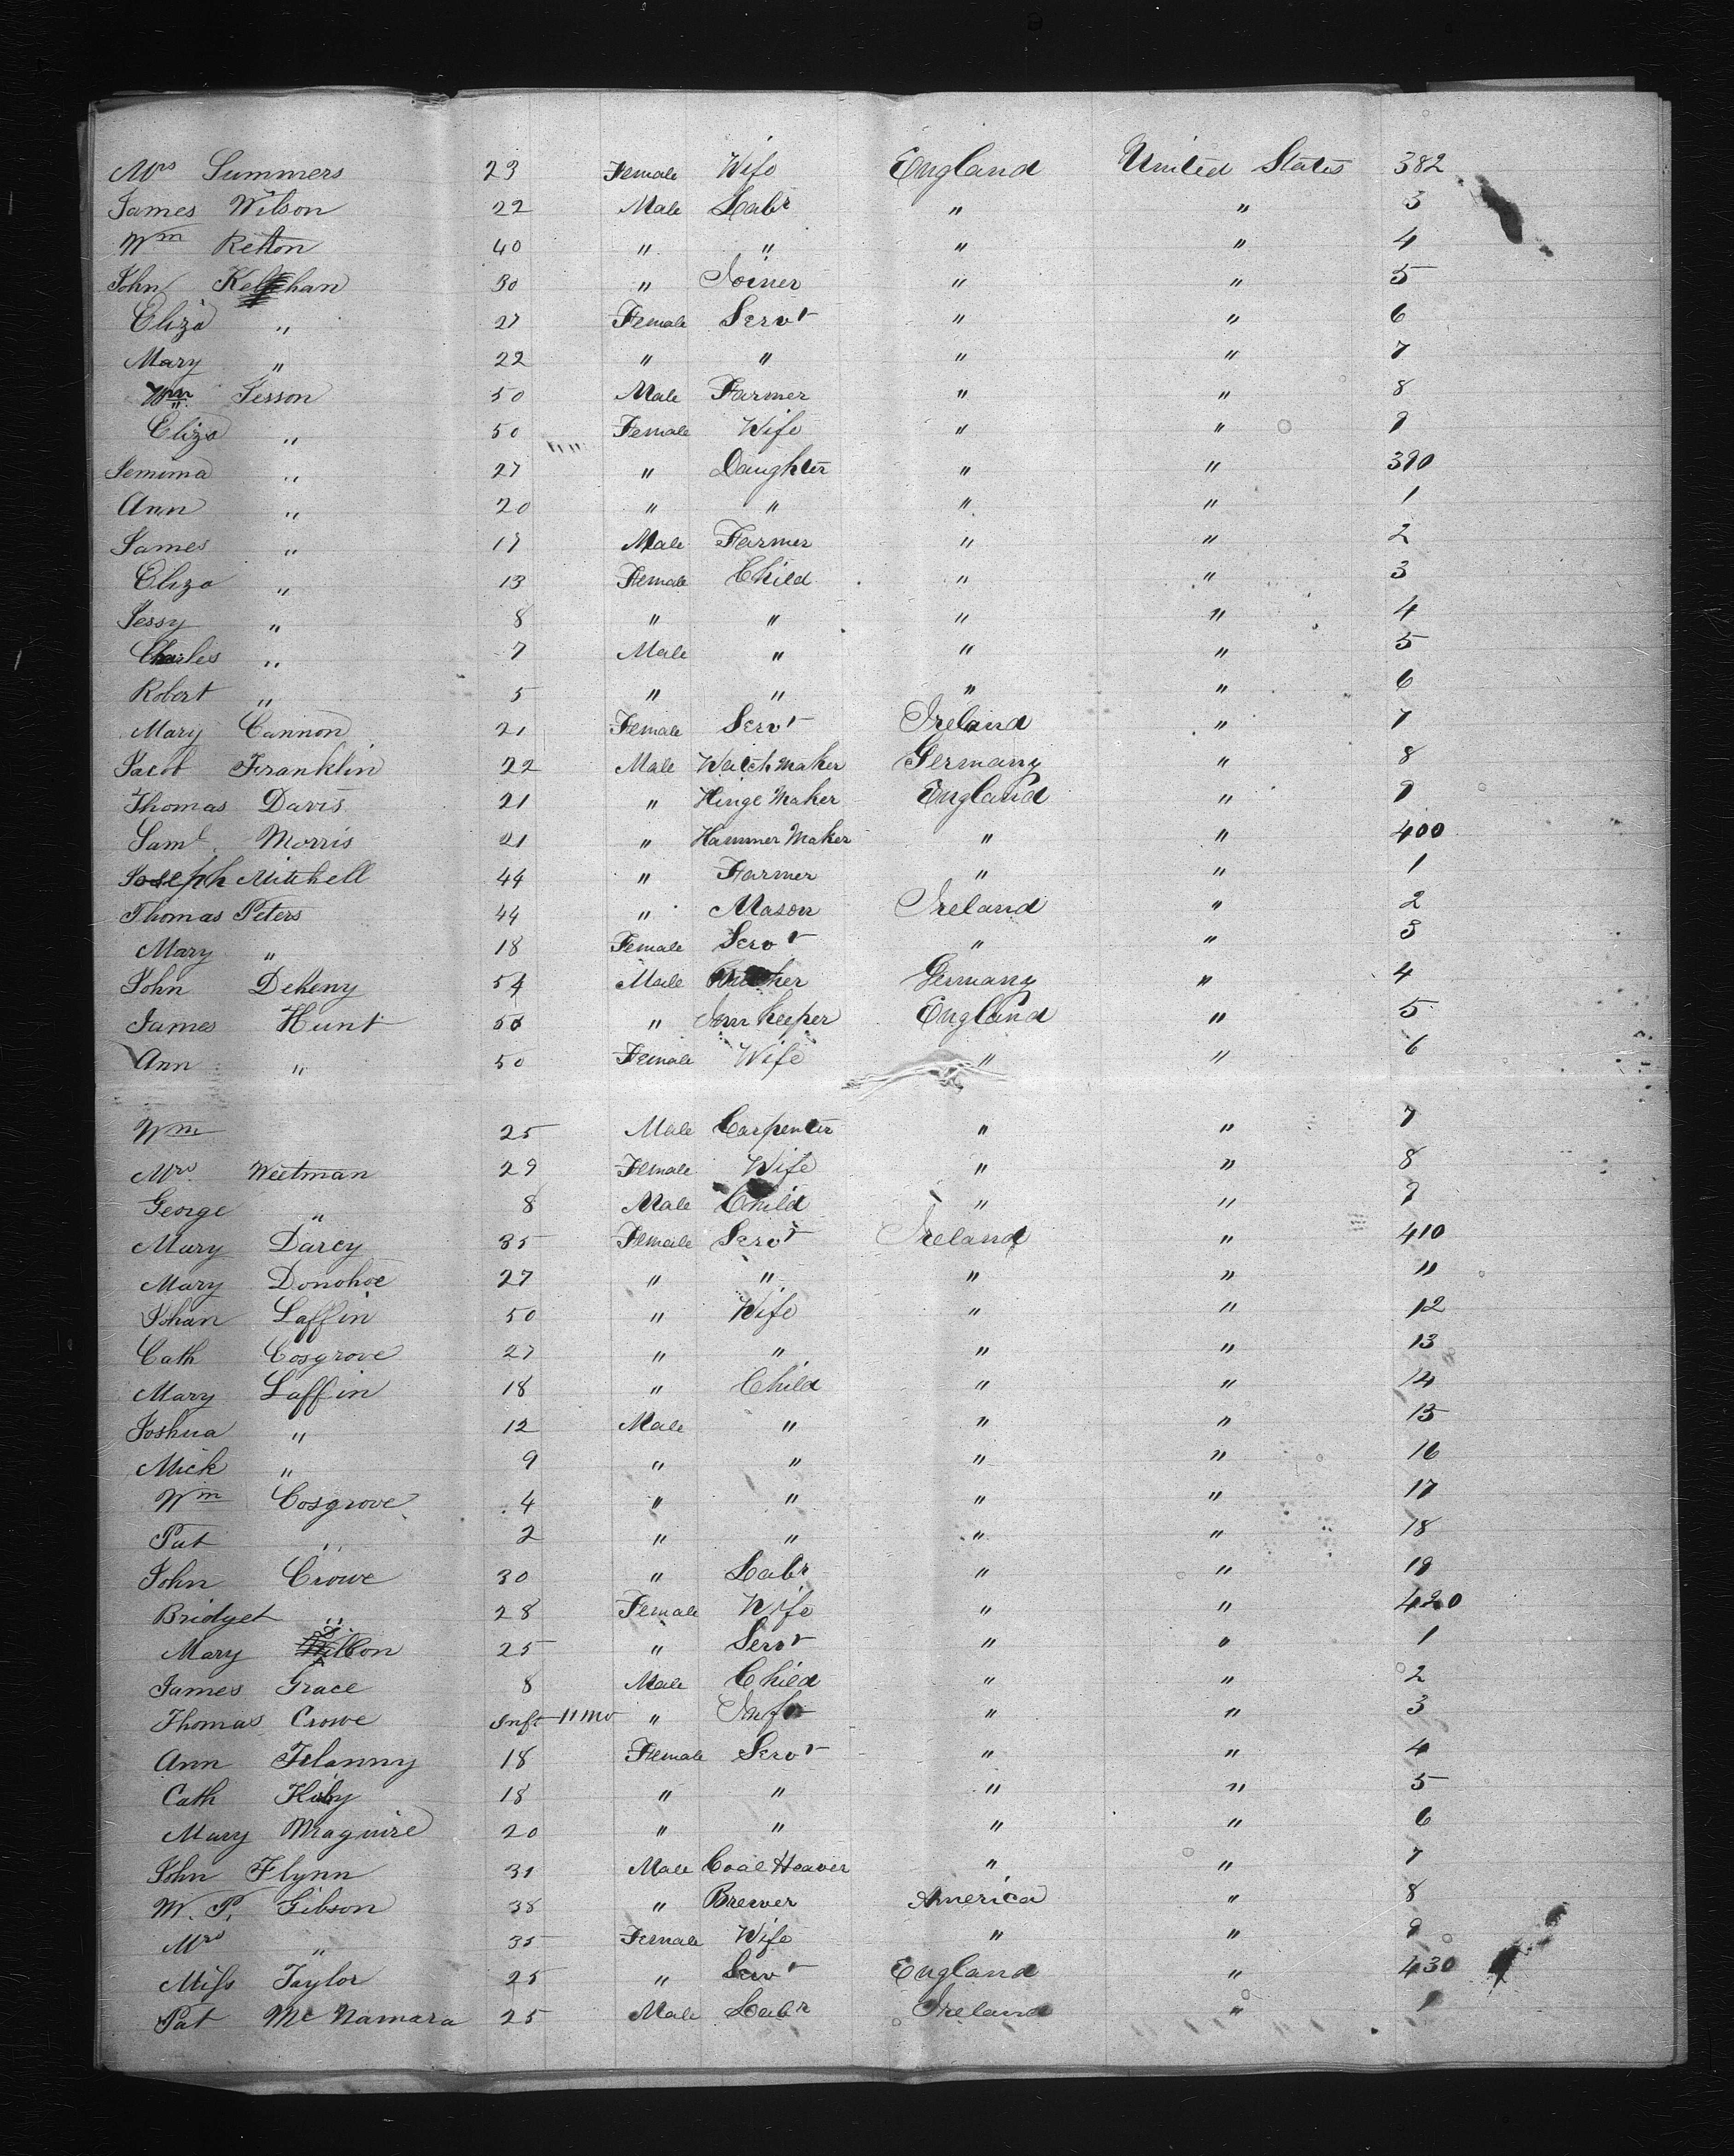 Mrs Summers 23 Female Wife England United States 382
James Wilson 22 Male Labr " " 3
Wm Retton 40 " " " " 4
John 30 " Joiner " " 5
Eliza " 27 Female Servt " " 6
Mary " 22 " " " " 7
Wm Jesson 50 Male Farmer " " 8
Eliza " 50 Female Wife " " 9
Jemima " 27 " Daughter " " 390
Ann " 20 " " " " 1
James " 17 Male Farmer " " 2
Eliza " 13 Female Child " " 3
Jessy " 8 " " " " 4
Charles " 7 Male " " " 5
Robert " 5 " " " " 6
Mary Cannon 21 Female Servt Ireland " 7
Jacob Franklin 22 Male Watch Maker Germany " 8
Thomas Davis 21 " Hinge Maker England " 9
Saml. Morris 21 " Hammer Maker " " 400
Joseph Mitchell 44 " Farmer " " 1
Thomas Peters 44 " Mason Ireland " 2
Mary " 18 Female Servt " " 3
John Deheny 54 Male Germany " 4
James Hunt " Inn Keeper England " 5
Ann " 50 Female Wife " " 6
Wm 25 Male Carpenter " " 7
Mrs. Weetman 29 Female Wife " " 8
George " 8 Male Child " " 9
Mary Darcy 35 Female Servt Ireland " 410
Mary Donohoe 27 " " " " 11
Johan Laffin 50 " Wife " " 12
Cath Cosgrove 27 " " " " 13
Mary Laffin 18 " Child " " 14
Joshua " 12 Male " " " 15
Mick " 9 " " " " 16
Wm Cosgrove 4 " " " " 17
Pat " 2 " " " " 18
John Crowe 30 " Labr " " 19
Bridget " 28 Female Wife " " 420
Mary 25 " Servt " " 1
James Grace 8 Male Child " " 2
Thomas Crowe Inft 11 Mo " Inft " " 3
Ann Flanny 18 Female Servt " " 4
Cath 18 " " " " 5
Mary Maguire 20 " " " " 6
John Flynn 31 Male Coal Heaver " " 7
W. P. Gibson 38 " Brewer America " 8
Mrs " 35 Female Wife " " 9
Miss Taylor 25 " Servt England " 430
Pat Mc Namara 25 Male Labr Ireland " 1